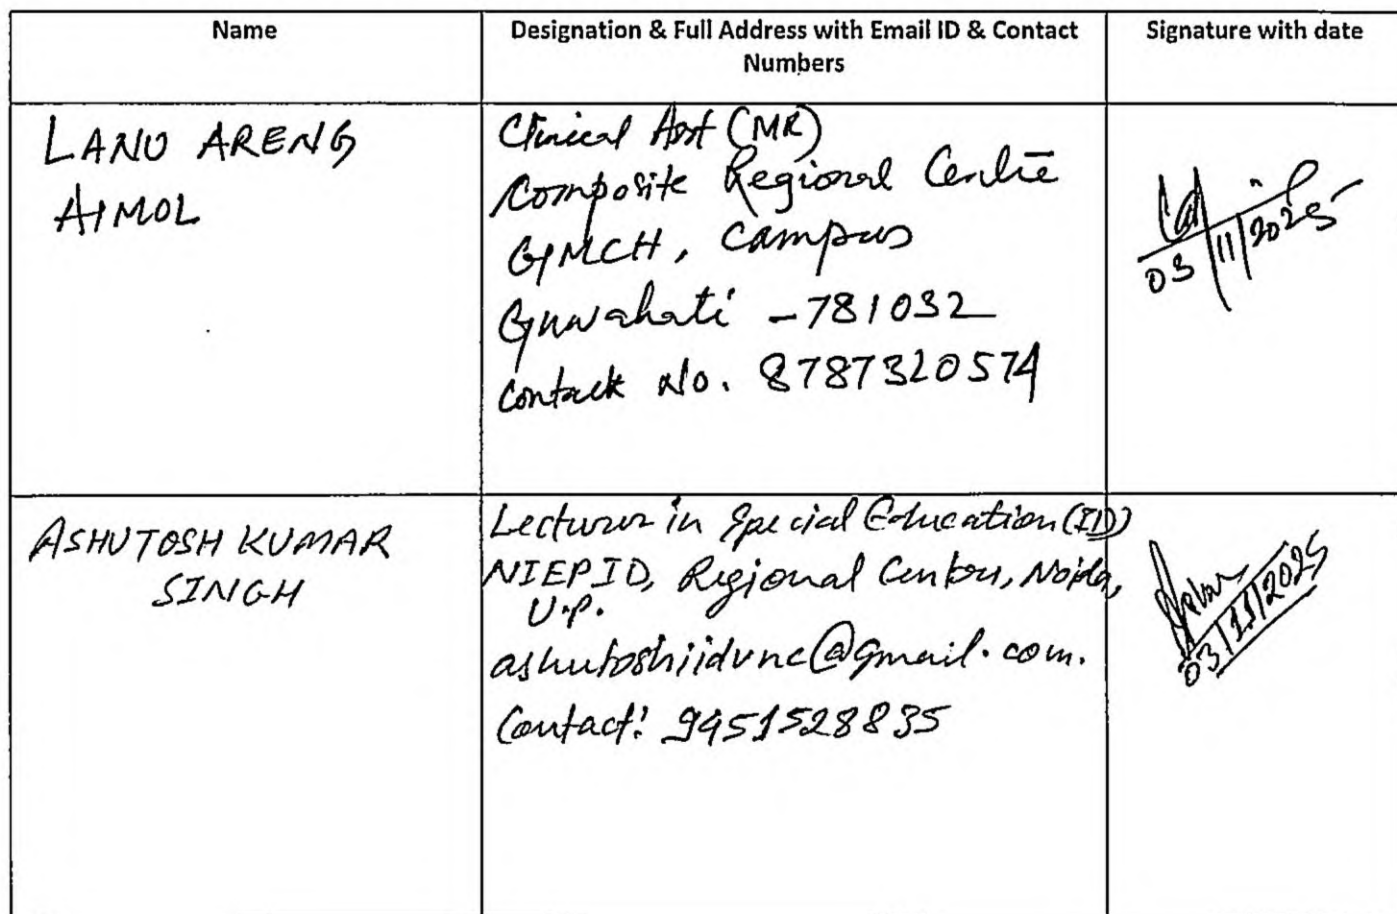 Name
Designation & Full Address with Email ID & Contact
Numbers
Signature with date
LANU ARENG
AIMOL
Clinical Asst (MR)
Composite Regional Centre
GMCH, Campus
Guwahati - 781032
Contact No. 8787320574
03/11/2025
ASHUTOSH KUMAR
SINGH
Lecturer in Special Education (ID)
NIEPID, Regional Center, Noida,
U.P.
ashutoshiidvnc@gmail.com.
Contact: 9451528835
03/11/2025